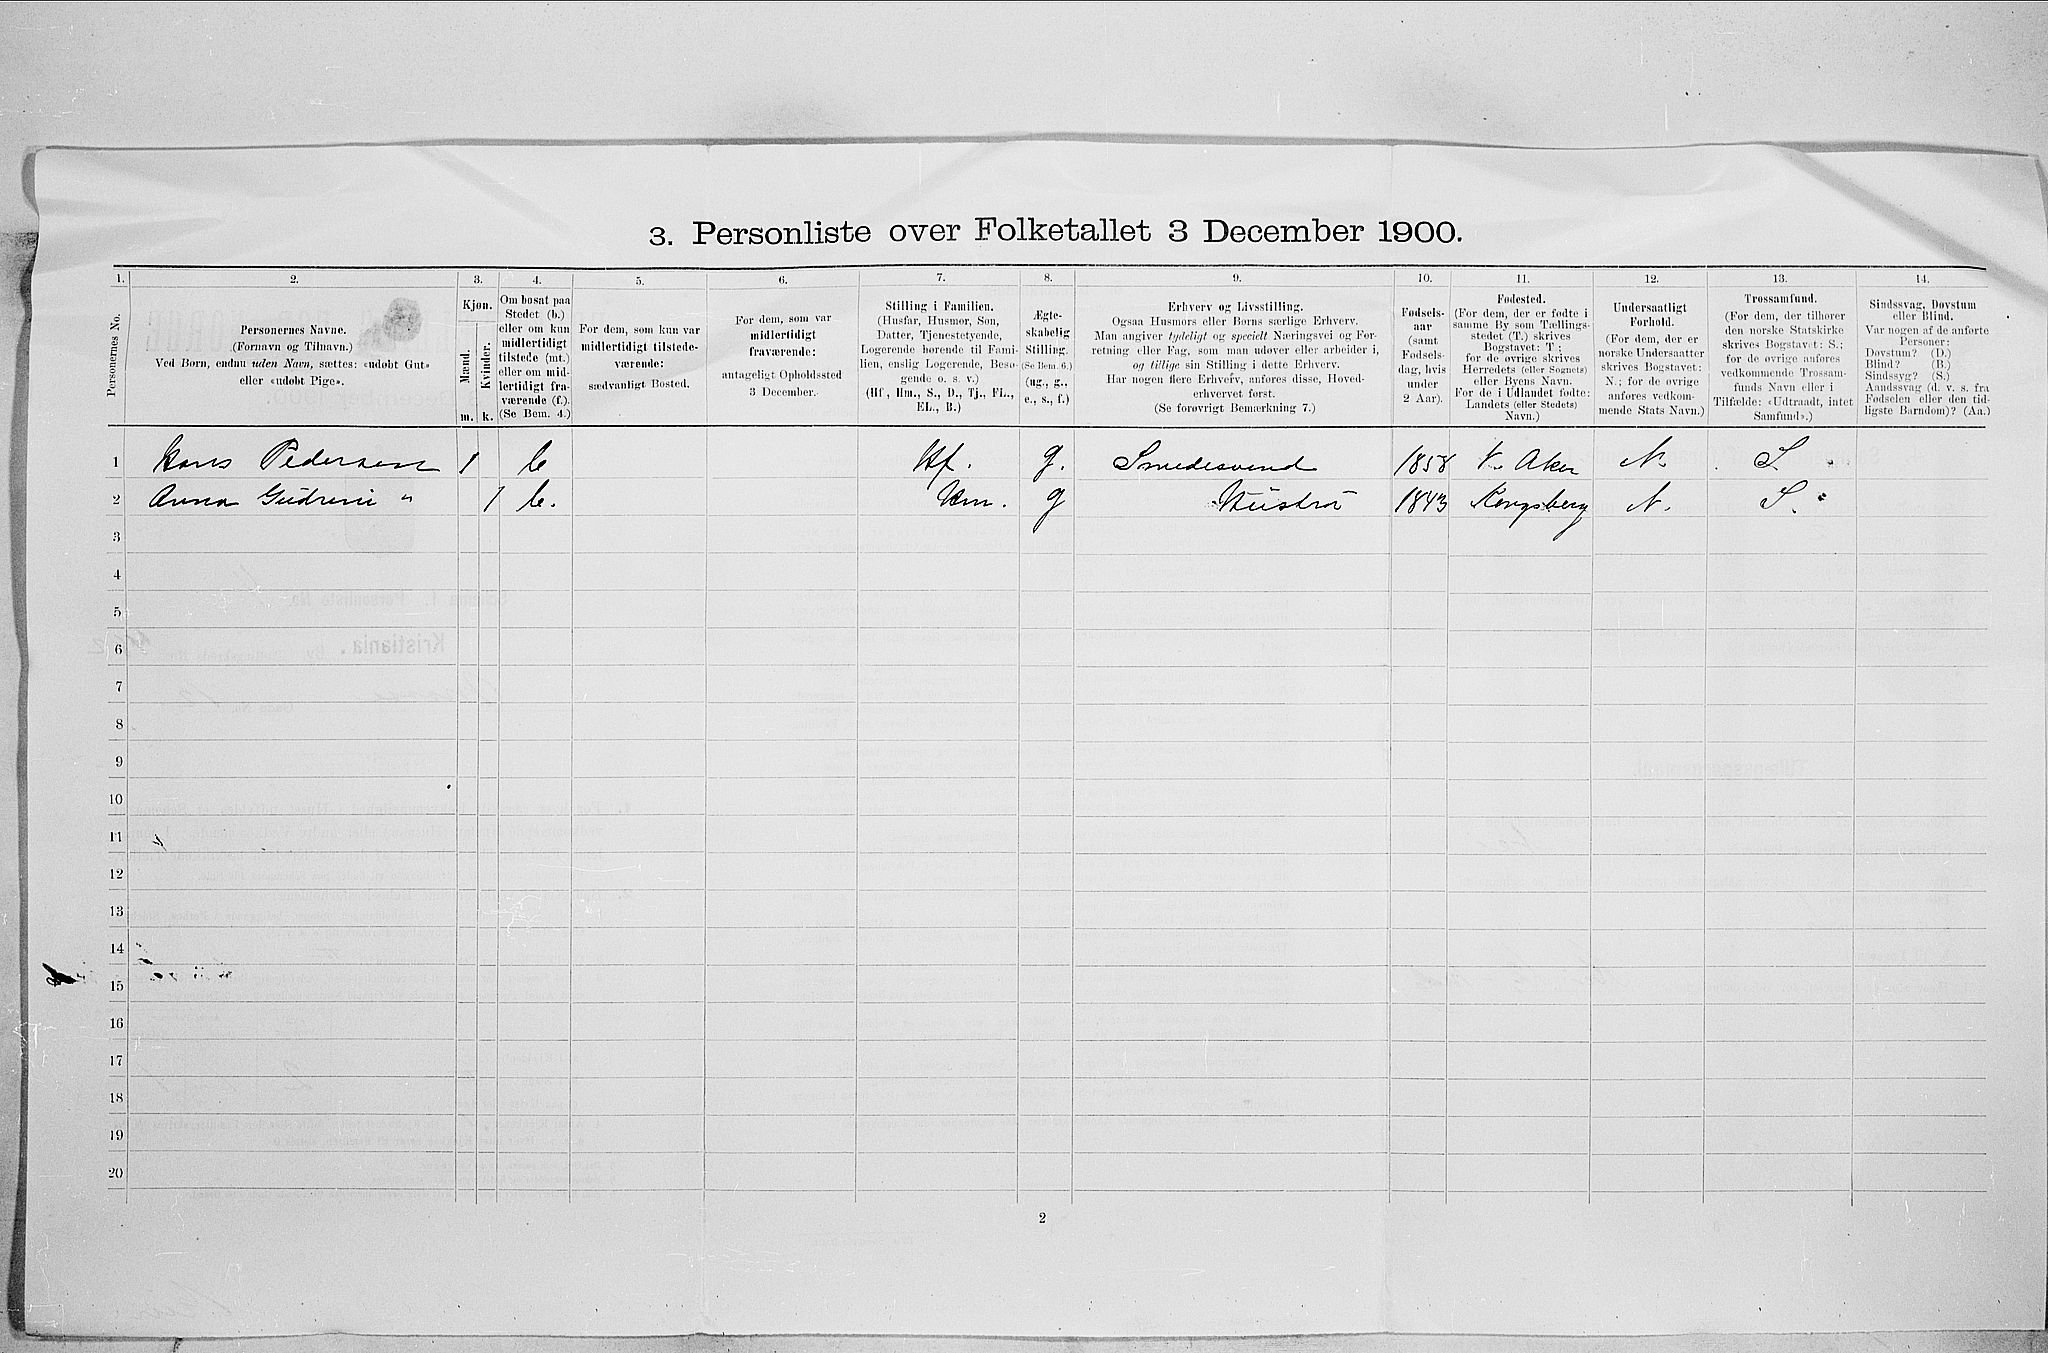 3. Personliste over Folketallet 3 December 1900.
1. 2. 3. 4. 5. 6. 7. 8. 9. 10. 11. 12. 13. 14.
Personernes No.
Personernes Navne.
(Fornavn og Tilnavn.)
Ved Børn, endnu uden Navn, sættes: «udøbt Gut»
eller «udøbt Pige».
Kjøn.
Mænd.
Kvinder.
m. k.
Om bosat paa
Stedet (b.)
eller om kun
midlertidigt
tilstede (mt.)
eller om mid-
lertidigt fra-
værende (f.).
(Se Bem. 4.)
For dem, som kun var
midlertidigt tilstede-
værende:
sædvanligt Bosted.
For dem, som var
midlertidigt
fraværende:
antageligt Opholdssted
3 December.
Stilling i Familien.
(Husfar, Husmor, Søn,
Datter, Tjenestetyende,
Logerende hørende til Fami-
lien, enslig Logerende, Besø-
gende o. s. v.)
(Hf., Hm., S., D., Tj., FL.,
EL., B.)
Ægte-
skabelig
Stilling.
(Se Bem. 6.)
(ug., g.,
e., s., f.)
Erhverv og Livsstilling.
Ogsaa Husmors eller Børns særlige Erhverv.
Man angiver tydeligt og specielt Næringsvei og For-
retning eller Fag, som man udøver eller arbeider i,
og tillige sin Stilling i dette Erhverv.
Har nogen flere Erhverv, anføres disse, Hoved-
erhvervet først.
(Se forøvrigt Bemærkning 7.)
Fødsels-
aar
(samt
Fødsels-
dag, hvis
under
2 Aar).
Fødested.
(For dem, der er fødte i
samme By som Tællings-
stedet (T.) skrives
Bogstavet: T;
for de øvrige skrives
Herredets (eller Sognets)
eller Byens Navn.
For de i Udlandet fødte:
Landets (eller Stedets)
Navn.)
Undersaatligt
Forhold.
(For dem, der er
norske Undersaatter
skrives Bogstavet:
N.; for de øvrige
anføres vedkom-
mende Stats Navn.)
Trossamfund.
(For dem, der tilhører
den norske Statskirke
skrives Bogstavet: S.;
for de øvrige anføres
vedkommende Trossam-
funds Navn eller i
Tilfælde: «Udtraadt, intet
Samfund».)
Sindssvag, Døvstum
eller Blind.
Var nogen af de anførte
Personer:
Døvstum? (D.)
Blind? (B.)
Sindssyg? (S.)
Aandssvag (d. v. s. fra
Fødselen eller den tid-
ligste Barndom)? (Aa.)
1 Hans Pedersen 1 b Hf. g. Smedesvend 1858 V. Aker N. S.
2 Anna Gudrini " 1 b. Hm. g Hustru 1843 Kongsberg N. S.
3
4
5
6
7
8
9
10
11
12
13
14
15
16
17
18
19
20
2